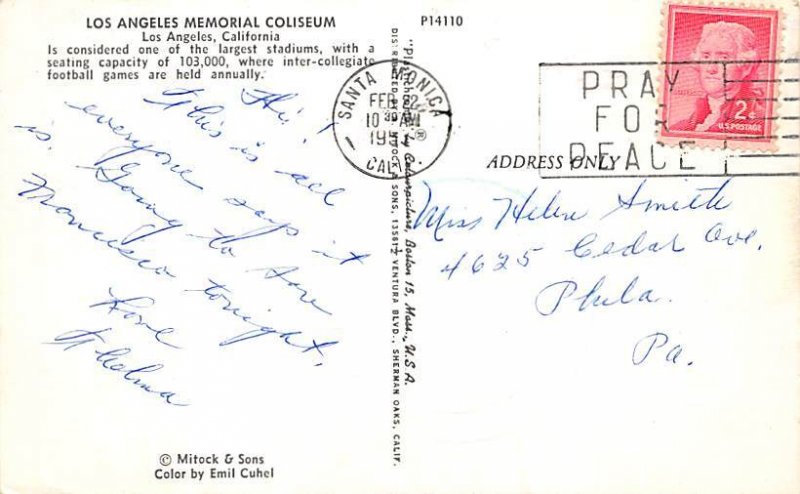 LOS ANGELES MEMORIAL COLISEUM
Los Angeles, California
Is considered one of the largest stadiums, with a
seating capacity of 103,000, where inter-collegiate
football games are held annually.
P14110
Hi!
This is all
everyone says it
is. Going to San
Francisco tonight,
Love
Thelma
© Mitock & Sons
Color by Emil Cuhel
"Plastichrome" by Colourpicture, Boston 15, Mass., U.S.A.
DISTRIBUTED BY MITOCK & SONS, 13581½ VENTURA BLVD., SHERMAN OAKS, CALIF.
SANTA MONICA
FEB 22
10 30 AM
CALIF.
PRAY
FOR
PEACE
2¢
U.S. POSTAGE
ADDRESS ONLY
Miss Helen Smith
4625 Cedar Ave.
Phila.
Pa.